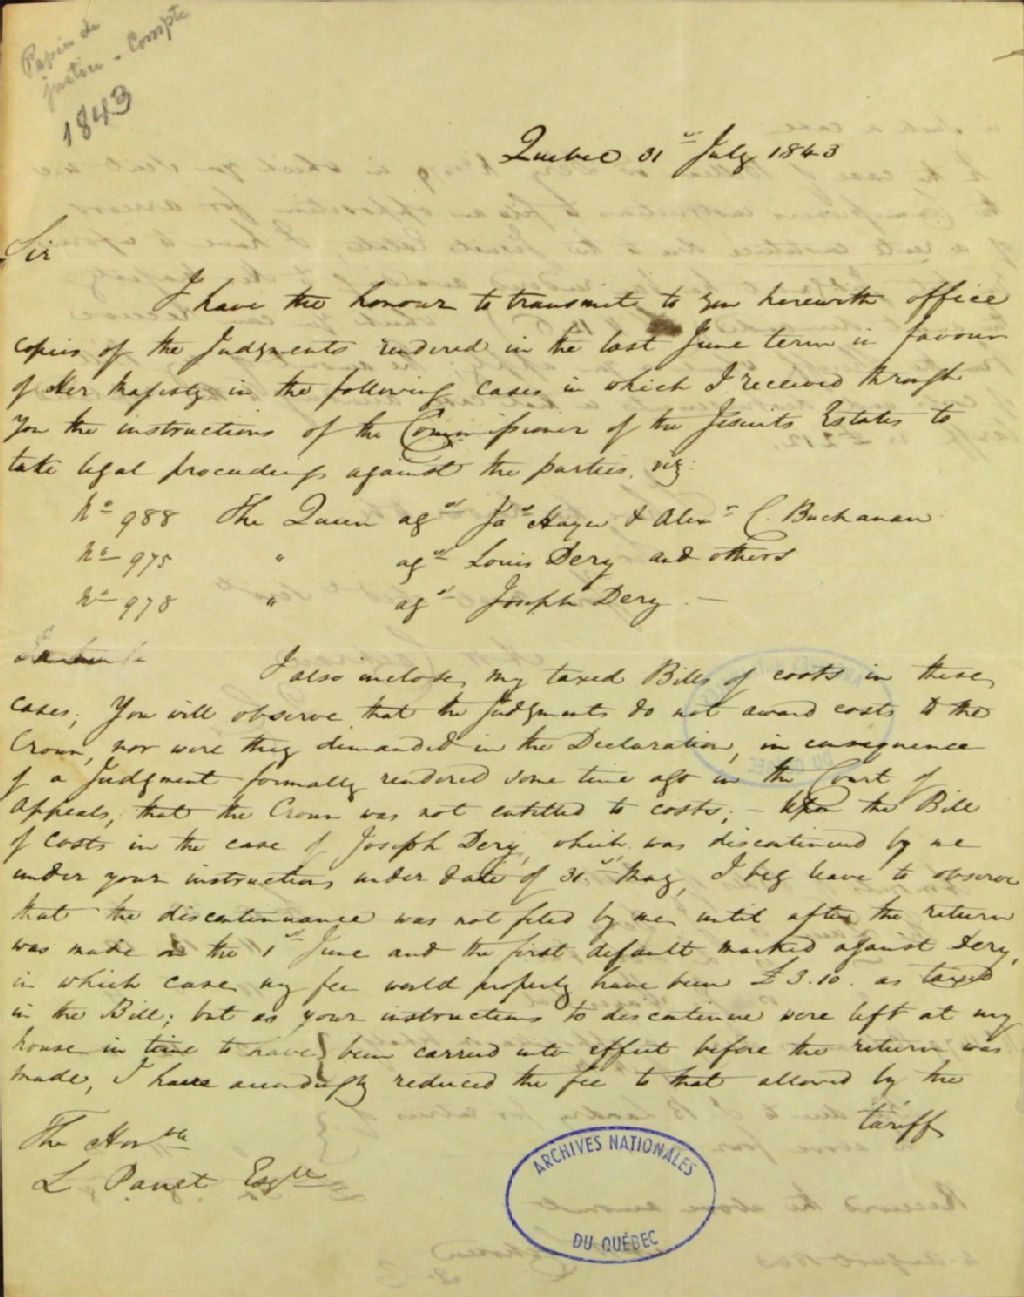 Papier de
justice - Compte
1843
Quebec 31st July 1843
Sir
I have the honour to transmit to you herewith office
copies of the Judgments rendered in the last June term in favour
of Her Majesty in the following cases in which I received through
you the instructions of the Commissioner of the Jesuits Estates to
take legal proceedings against the parties, viz:
No 988 The Queen agst Jas Hayer & Alexr C. Buchanan
No 975 " agst Louis Dery and others
No 978 " agst Joseph Dery. —
I also inclose my taxed Bills of costs in these
cases; You will observe that the Judgments do not award costs to the
Crown, nor were they demanded in the Declaration, in consequence
of a Judgment formally rendered some time ago in the Court of
Appeals, that the Crown was not entitled to costs; – Upon the Bill
of Costs in the case of Joseph Dery, which was discontinued by me
under your instructions under date of 31st May, I beg leave to observe
that the discontinuance was not filed by me until after the return
was made on the 1st June and the first default marked against Dery,
in which case my fee would properly have been £3.10. as taxed
in the Bill; but as your instructions to discontinue were left at my
house in time to have been carried into effect before the return was
made, I have accordingly reduced the fee to that allowed by the
tariff
The Honble
L Panet Esqre
ARCHIVES NATIONALES
DU QUÉBEC